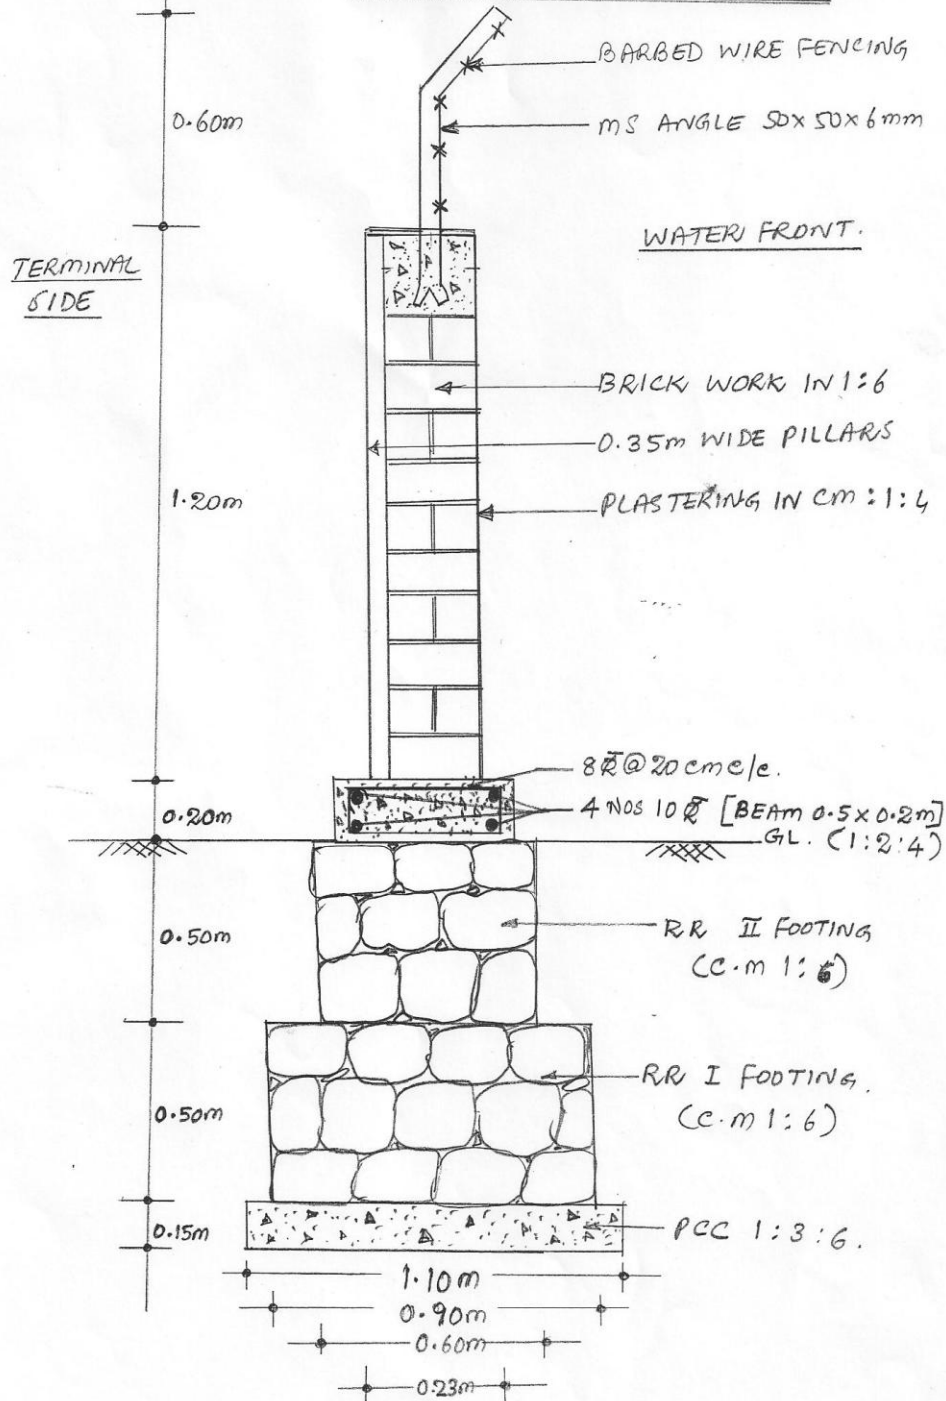 BARBED WIRE FENCING
0.60m
MS ANGLE 50x50x6mm
WATER FRONT.
TERMINAL
SIDE
BRICK WORK IN 1:6
0.35m WIDE PILLARS
1.20m
PLASTERING IN CM:1:4
8Φ@20cm c/c.
0.20m
4 NOS 10Φ [BEAM 0.5x0.2m]
GL. (1:2:4)
0.50m
RR II FOOTING
(C.m 1:6)
RR I FOOTING.
0.50m
(C.m 1:6)
0.15m
PCC 1:3:6.
1.10m
0.90m
0.60m
0.23m